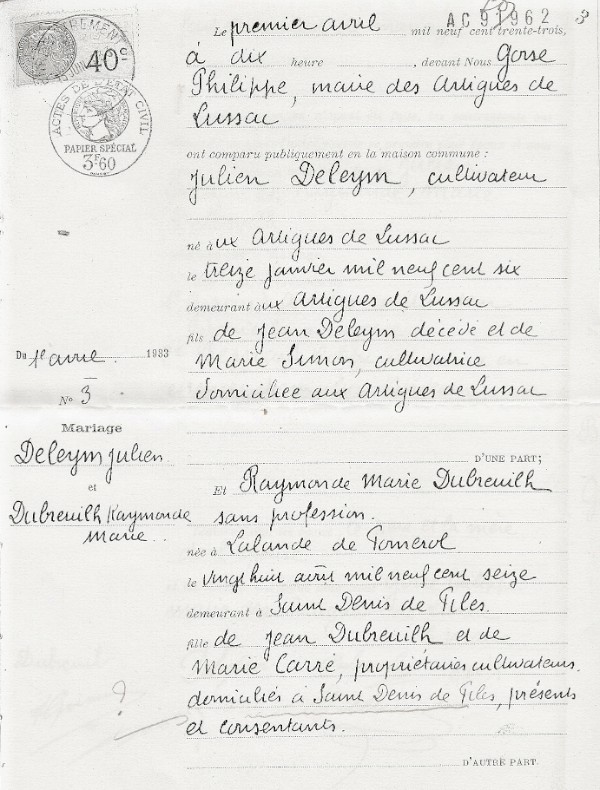 AC91962
3
Le premier avril mil neuf cent trente-trois,
40
à dix heure , devant Nous Gorse
Philippe, maire des Artigues de
Lussac
ACTES DE L'ETAT CIVIL
PAPIER SPÉCIAL
3F60
ont comparu publiquement en la maison commune :
Julien Deleym, cultivateur
né à ux Artigues de Lussac
le treize janvier mil neuf cent six
demeurant à ux Artigues de Lussac
fils de Jean Deleym décédé et de
Marie Simon, cultivatrice
domiciliée aux Artigues de Lussac
Du 1er avril 1933
N° 3
Mariage
Deleym Julien
et
Dubreuilh Raymonde
Marie
D'UNE PART;
Et Raymonde Marie Dubreuilh
sans profession.
née à Lalande de Pomerol
le vingt huit avril mil neuf cent seize
demeurant à Saint Denis de Piles.
fille de Jean Dubreuilh et de
Marie Carré, propriétaires cultivateurs.
domiciliés à Saint Denis de Piles, présents
et consentants.
?
D'AUTRE PART.